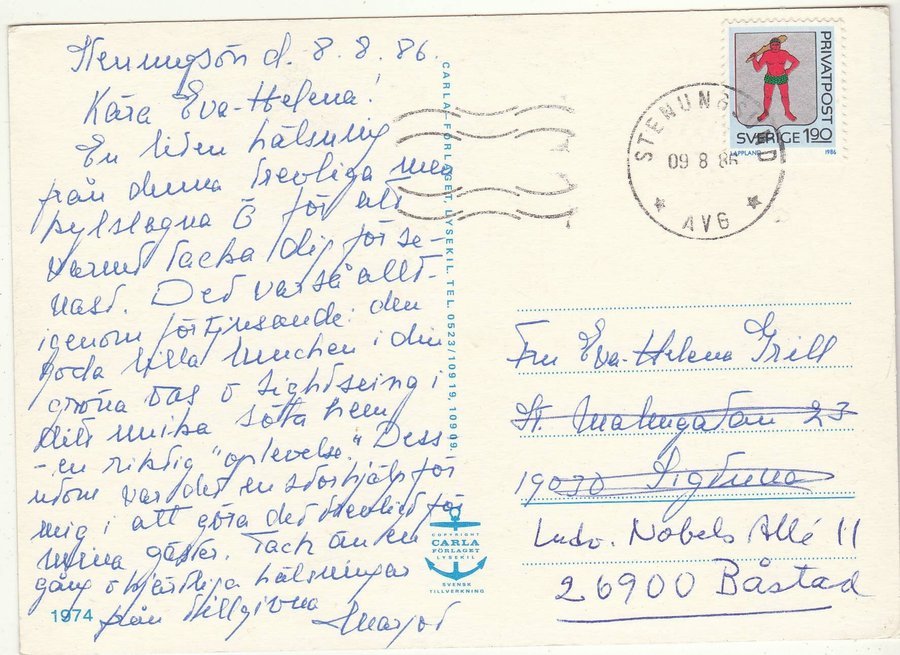 d. 8.8.86.
Kära Eva-Helena!
En liten hälsning
från denna trevliga men
kylslagna Ö för att
varmt tacka dig för se-
nast. Det var så allt-
igenom förtjusande: den
goda lilla lunchen i din
gröna oas o sightseeing i
ditt unika söta hem
- en riktig "oplevelse". Dess-
utom var det en stor hjälp för
mig i att göra det trevligt för
mina gäster. Tack än en
gång o hjärtliga hälsningar
från tillgivna
Margot
1974
CARLA-FÖRLAGET, LYSEKIL. TEL. 0523/109 19, 109 09.
COPYRIGHT
CARLA
FÖRLAGET
LYSEKIL
SVENSK
TILLVERKNING
PRIVATPOST
SVERIGE 1.90
LAPPLAND 1986
STENUNGSUND
09 8 86
* AVG *
Fru Eva-Helena Grill
St. Malmgatan 23
19030 Sigtuna
Ludv. Nobels Allé 11
26900 Båstad